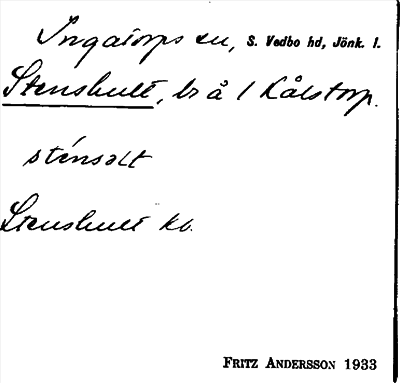 Ingatorps sn, S. Vedbo hd, Jönk. l.
Stenshult, br å / Kålstorp.
sténsəlt
Stenshult kb.
FRITZ ANDERSSON 1933